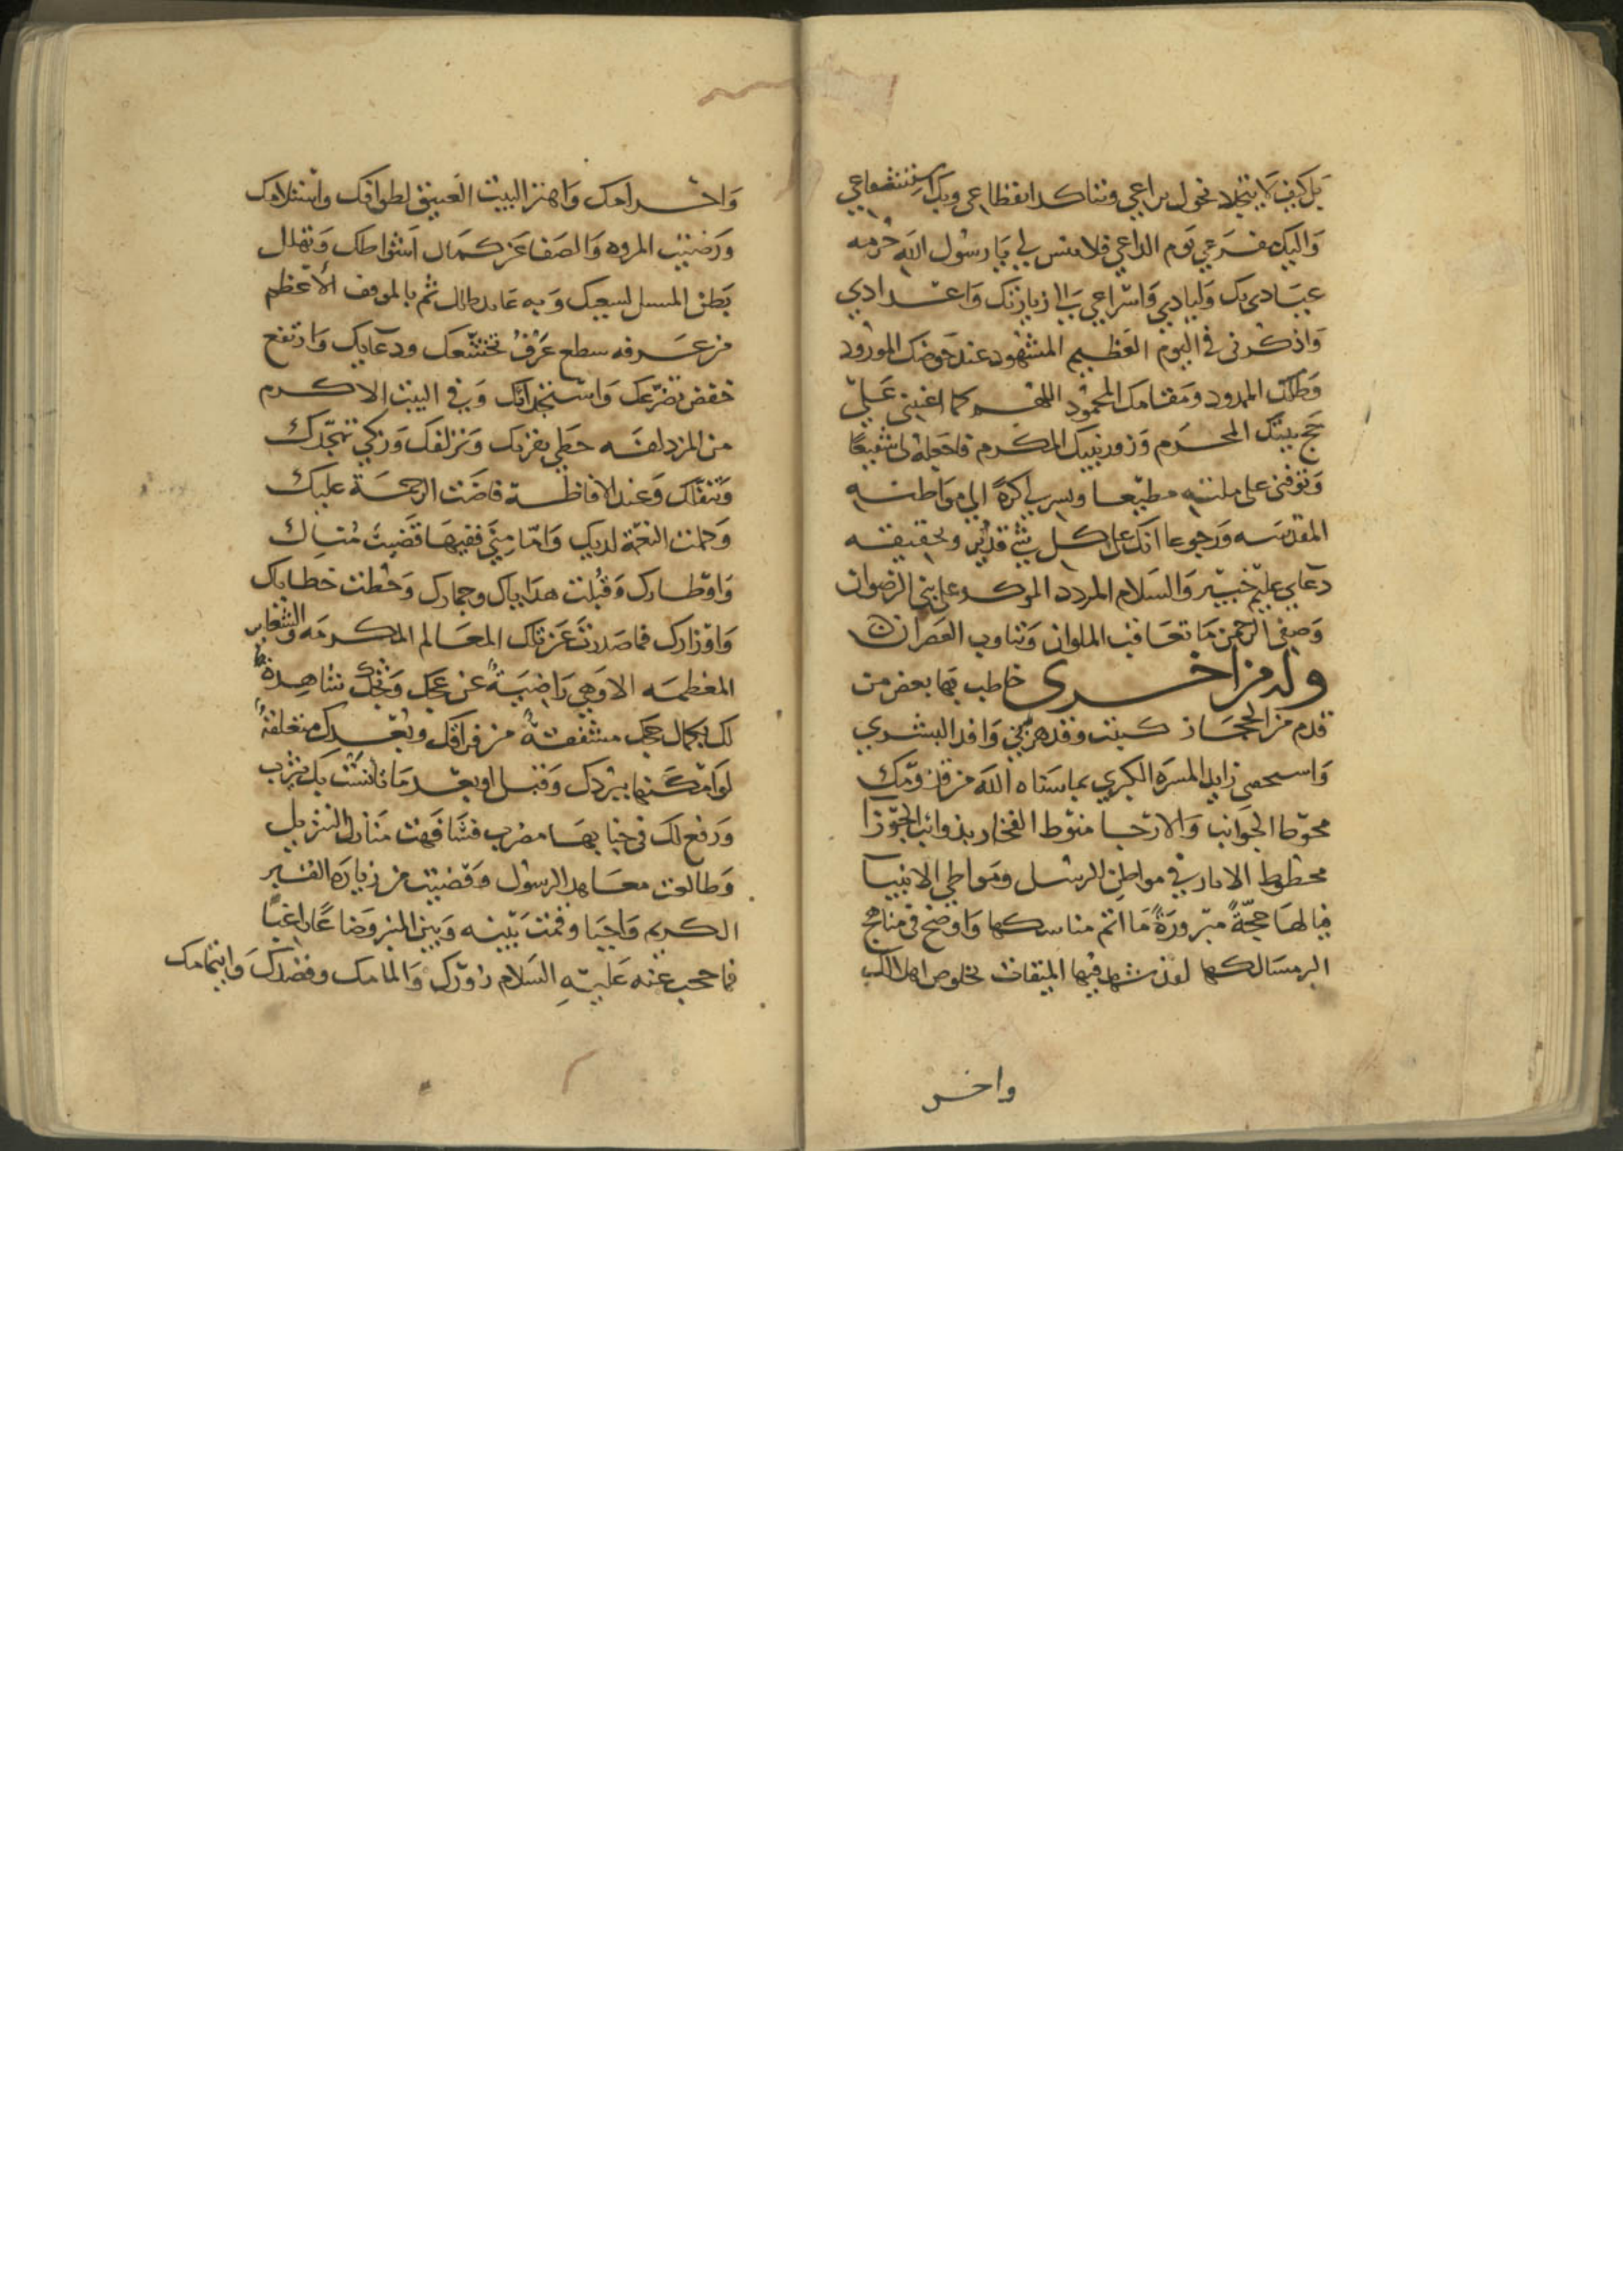 بل كيف لا ينجلا نحول يراعي وتتاكد انقطاعي وبك استشفاعي
وَاليك مفزعي يَوم الداعي فلا تنس لي يَا رسُول الله حُرمه
عبَادي بك وَليادي وَاسْراعي بَالى زيارتك وَاعتدادي
وَاذكُرني في اليَوم العَظيم المشهُود عند حَوضك المورُود
وَظلك الممدود ومَقامك المحمُود اللهم كما اعنتني عَليّ
حَج بيتك المحرَم وَزور نبيك المكرم فاجَعله لى شفيعًا
وَتوَفني على ملته مطيعا ويسر لي كرةً الي موَاطنه
المقدسَه وَرجوعا انك على كل شيْ قدير وبحقيقه
دعَاي عليم خبير وَالسَلام المردد الموكد على نبي الرضوان
وَصفي الرحمن مَا تعَاقب الملوان وَتناوب العَصران
وله من اخرى خاطب بها بعض من
قدم من الحجَاز كتبت وقد هزني وَافد البشري
وَاستحصى زايد المسرَه الكبري بما سنَاه الله من قدومك
محوّط الجوَانب وَالارْجا منوْط الفخار بذوائب الجوزا
محطوط الاثار في مواطن الرسل ومَواطي الانبيا
فيا لهَا حجّةً مبرورَةً مَا اتم مناسكها وَاوضح في مناهج
البر مسَالكها لقد شهد فيها الميقات بخلوص اهلالك
واحر
وَاحرامك وَاهتز البيت العَتيق لطوافك وَاستلامك
وَرضيَت المروه وَالصَفا عَن كمَال اَشوَاطك وَتهلل
بَطن المسيل لسعيك وَبه عَايد ثم بالموقف الاعْظم
من عَرفه سطع عَرْفُ تخشّعك ودعَايك وَارتفع
خفض تضرّعك وَاستنجدائك وَفي البيت الاكرم
من المزدلفه حظي بقربك وَتزلفك وَزكي تهجّدك
وَتنفّلك وَعند الافاضَة فاضَت الرحمَة عَليك
وَكملت النعْمَة لديك وَامّا مِني ففيهَا قضيتَ مُناك
وَاوْطارك وَقُبلت هدَاياك وجمارك وَحُطت خطاياك
وَاوْزارك فما صَدرتَ عَن تلك المعَالم المكرمَه وَالشعَاير
المعَظمه الا وَهي رَاضيَةٌ عن عجك وَثجك شاهِدةٌ
لك بكمال حجك مشفقةٌ من فراقك وبُعدك متعلقةٌ
لوَ امْكنها ببُردك وَقبل او بعد مَا تانسَت بك يثرب
وَرفع لك في جنابهَا مضرب فشَافَهت منَازل التنزيل
وَطالعت معَاهد الرسُول وَقضيت من زيَارَه القبر
الكريم وَاجبَا وَقمت بَيْنه وَبين المنبر وَضَاعًا رَاغبًا
فما حجب عَنه عَليهِ السَلام زوْرك وَالمامك وقصْدك وَايتمامك